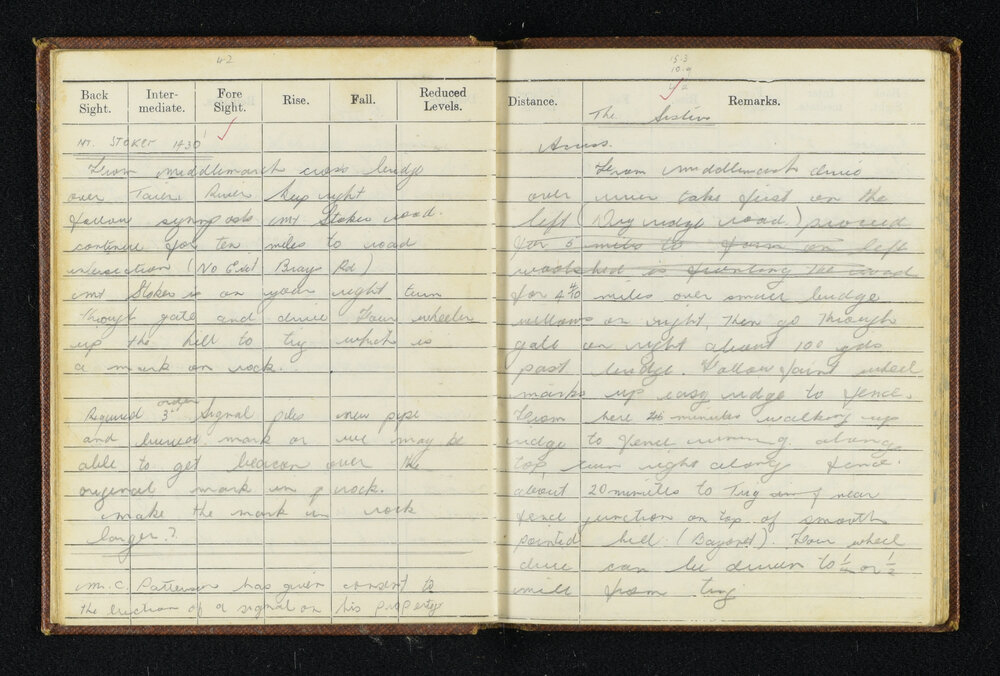 42
Back Sight.
Inter- mediate.
Fore Sight.
Rise.
Fall.
Reduced Levels.
Mt. Stoker 1430'
From middlemarch cross bridge
over Taieri River keep right
follow signposts mt Stoker road.
continue for ten miles to road
intersection (No Exit Brays Rd)
mt Stoker is on your right turn
through gate and drive Four wheeler
up the hill to trig which is
a mark on rock.
Required 3rd order signal piles new pipe
and buried mark or we may be
able to get beacon over the
original mark in rock.
make the mark in rock
larger?
Mr. C. Patterson has given consent to
the erection of a signal on his property
15.3
10.9
Distance.
Remarks.
The Sisters
Access.
From middlemarch drive
over river take first on the
left (Dry ridge road) proceed
for 5 miles to farm on left
woolshed is fronting the road
for 4 4/10 miles over small bridge
willows on right, Then go through
gate on right about 100 yds
past bridge. Follow faint wheel
marks up easy ridge to fence.
From here minutes walking up
ridge to fence running along
top turn right along fence.
about 20 minutes to Trig near
fence junction on top of smooth
pointed hill (Bayonet). Four wheel
drive can be driven to 1/4 or 1/2
mile from trig